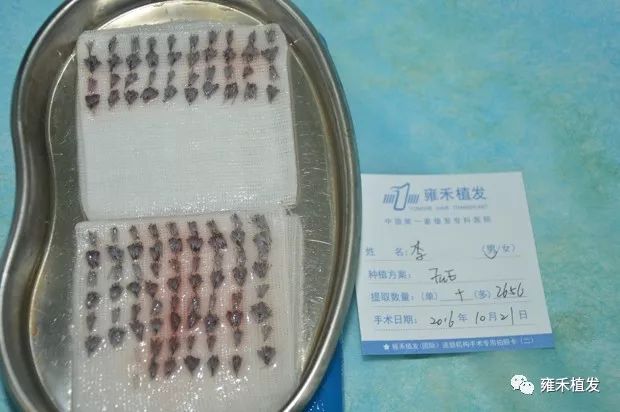 雍禾植发
YONGHE HAIR TRANSPLANT
中国第一家植发专科医院
姓 名:李 (男/女)
种植方案:
提取数量:(单) + (多) 2656
手术日期:2016年10月21日
★雍禾植发(国际)连锁机构手术专用拍照卡(二)
雍禾植发